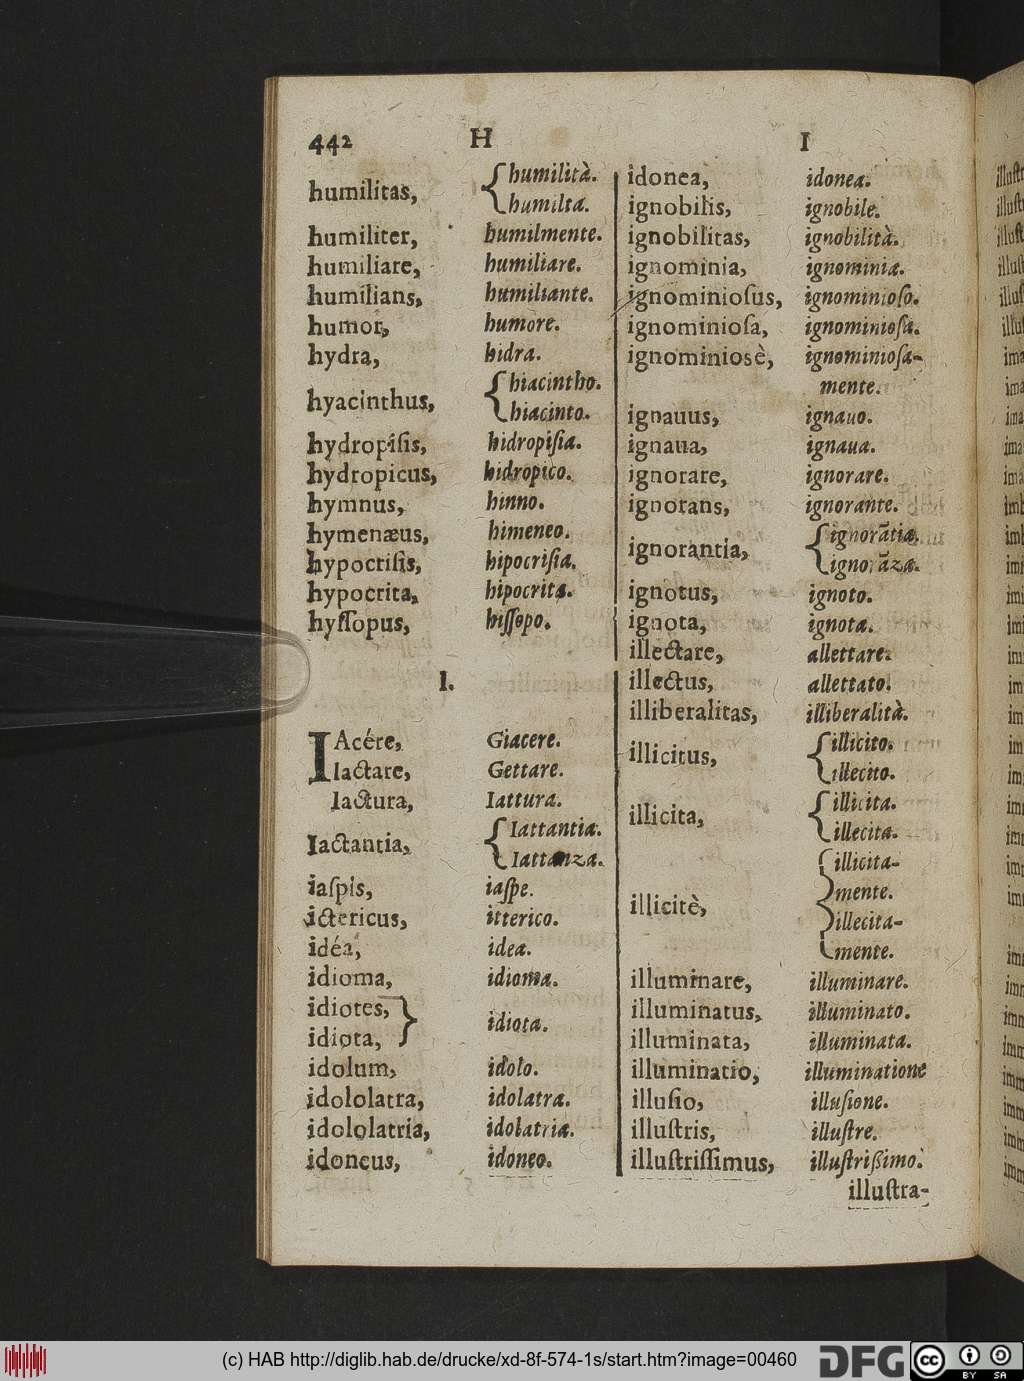 442 H I
humilitas, humilità.
humiltà.
humiliter, humilmente.
humiliare, humiliare.
humilians, humiliante.
humor, humore.
hydra, hidra.
hyacinthus, hiacintho.
hiacinto.
hydropisis, hidropisia.
hydropicus, hidropico.
hymnus, hinno.
hymenæus, himeneo.
hypocrisis, hipocrisia.
hypocrita, hipocrita.
hyſſopus, hiſſopo.
I.
IAcére, Giacere.
Iactare, Gettare.
Iactura, Iattura.
Iactantia, Iattantia.
Iattanza.
iaſpis, iaſpe.
ictericus, itterico.
idéa, idea.
idioma, idioma.
idiotes,
idiota, idiota.
idolum, idolo.
idololatra, idolatra.
idololatria, idolatria.
idoneus, idoneo.
idonea, idonea.
ignobilis, ignobile.
ignobilitas, ignobilità.
ignominia, ignominia.
ignominioſus, ignominioſo.
ignominioſa, ignominioſa.
ignominiosè, ignominioſa-
mente.
ignauus, ignauo.
ignaua, ignaua.
ignorare, ignorare.
ignorans, ignorante.
ignorantia, ignorãtia.
ignorãza.
ignotus, ignoto.
ignota, ignota.
illectare, allettare.
illectus, allettato.
illiberalitas, illiberalità.
illicitus, illicito.
illecito.
illicita, illicita.
illecita.
illicitè, illicita-
mente.
illecita-
mente.
illuminare, illuminare.
illuminatus, illuminato.
illuminata, illuminata.
illuminatio, illuminatione
illuſio, illuſione.
illuſtris, illuſtre.
illuſtriſſimus, illuſtrißimo.
illuſtra-
(c) HAB http://diglib.hab.de/drucke/xd-8f-574-1s/start.htm?image=00460
DFG cc BY SA